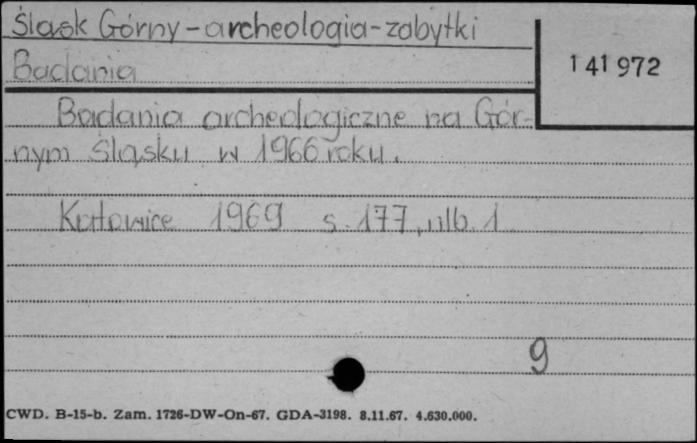 Śląsk Górny - archeologia - zabytki
Badania
141972
Badania archeologiczne na Gór-
nym Śląsku w 1966 roku.
Katowice 1969 s. 177, nlb. 1
9
CWD. B-15-b. Zam. 1726-DW-On-67. GDA-3198. 8.11.67. 4.630.000.